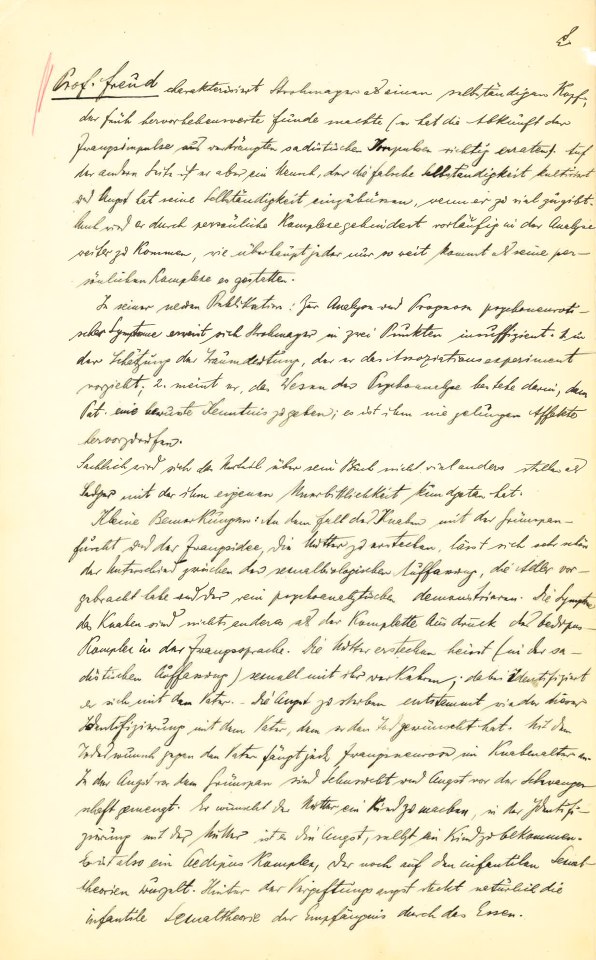 2
Prof. Freud charakterisiert Strohmayer als einen selbständigen Kopf,
der früh hervorhebenswerte Funde machte (er hat die Abkunft der
Zwangsimpulse aus verdrängten sadistischen Impulsen richtig erraten). Auf
der andern Seite ist er aber ein Mensch, der die falsche Selbständigkeit kultiviert
und Angst hat seine Selbständigkeit einzubüssen, wenn er zu viel zugibt.
wird er durch persönliche Komplexe gehindert vorläufig in der Analyse
weiter zu kommen, wie überhaupt jeder nur so weit kommt als seine per-
sönlichen Komplexe es gestatten.
In seiner neuen Publikation: Zur Analyse und Prognose psychoneuroti-
scher Symptome erweist sich Strohmayer in zwei Punkten insuffizient. 1. in
der Schätzung der Traumdeutung, der er das Assoziationsexperiment
vorzieht; 2. meint er, das Wesen der Psychoanalyse bestehe darin, dem
Pat. eine bewusste Kenntnis zu geben; es ist ihm nie gelungen Affekte
hervorzurufen.
Sachlich wird sich das Urteil über sein Buch nicht viel anders stellen als
Sadger mit der ihm eigenen Unerbittlichkeit kundgetan hat.
Kleine Bemerkungen: An dem Fall des Knaben mit der Grünspan-
furcht und der Zwangsidee, die Mutter zu erstechen, lässt sich sehr schön
der Unterschied zwischen der sexualbiologischen Auffassung, die Adler vor-
gebracht habe und der rein psychoanalytischen demonstrieren. Die Symptome
des Knaben sind nichts anderes als der komplette Ausdruck des Oedipus-
Komplex in der Zwangssprache. Die Mutter erstechen heisst (in der sa-
distischen Auffassung) sexuell mit ihr verkehren; dabei identifiziert
er sich mit dem Vater. - Die Angst zu sterben entstammt wieder dieser
Identifizierung mit dem Vater, dem er den Tod gewünscht hat. Mit dem
Todeswunsch gegen den Vater fängt jede Zwangsneurose im Knabenalter an.
In der Angst vor dem Grünspan sind Sehnsucht und Angst vor der Schwanger-
schaft gemengt. Er wünscht der Mutter ein Kind zu machen, in der Identifi-
zierung mit der Mutter ist es die Angst, selbst ein Kind zu bekommen.
Es ist also ein Oedipus Komplex, der noch auf den infantilen Sexual-
theorien wurzelt. Hinter der Vergiftungsangst steckt natürlich die
infantile Sexualtheorie der Empfängnis durch das Essen.